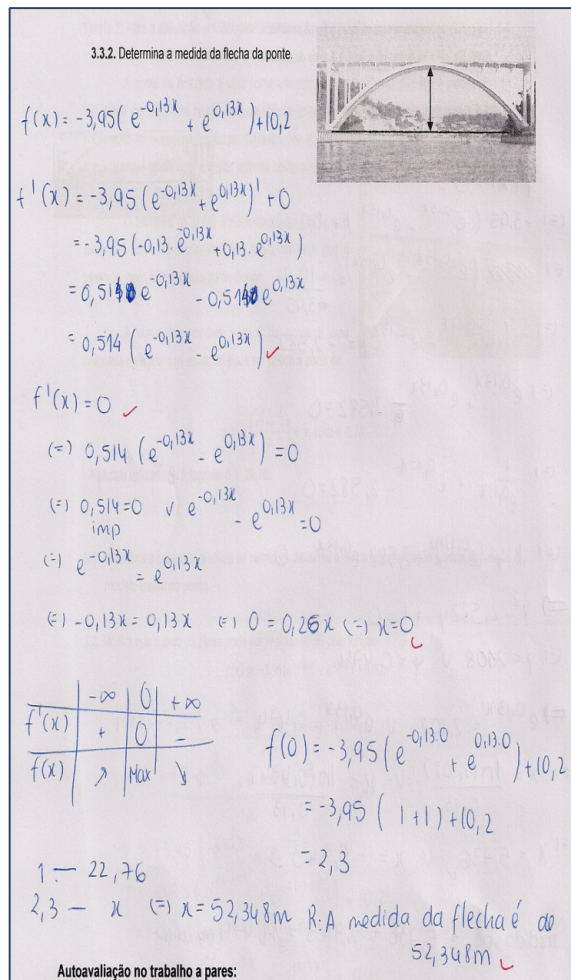 3.3.2. Determina a medida da flecha da ponte.
f(x) = -3,95(e^-0,13x + e^0,13x)+10,2
f'(x) = -3,95(e^-0,13x + e^0,13x)' + 0
= -3,95(-0,13.e^-0,13x +0,13.e^0,13x)
= 0,514 e^-0,13x - 0,514 e^0,13x
= 0,514 (e^-0,13x - e^0,13x)
f'(x) = 0
(=) 0,514 (e^-0,13x - e^0,13x) = 0
(=) 0,514=0 v e^-0,13x - e^0,13x = 0
imp
(=) e^-0,13x = e^0,13x
(=) -0,13x = 0,13x (=) 0 = 0,26x (=) x=0
-∞ 0 +∞
f'(x) + 0 -
f(x) ↗ Max ↘
f(0) = -3,95(e^-0,13.0 + e^0,13.0)+10,2
= -3,95 (1+1)+10,2
= 2,3
1 — 22,76
2,3 — x (=) x= 52,348m R: A medida da flecha é de
52,348m
Autoavaliação no trabalho a pares: